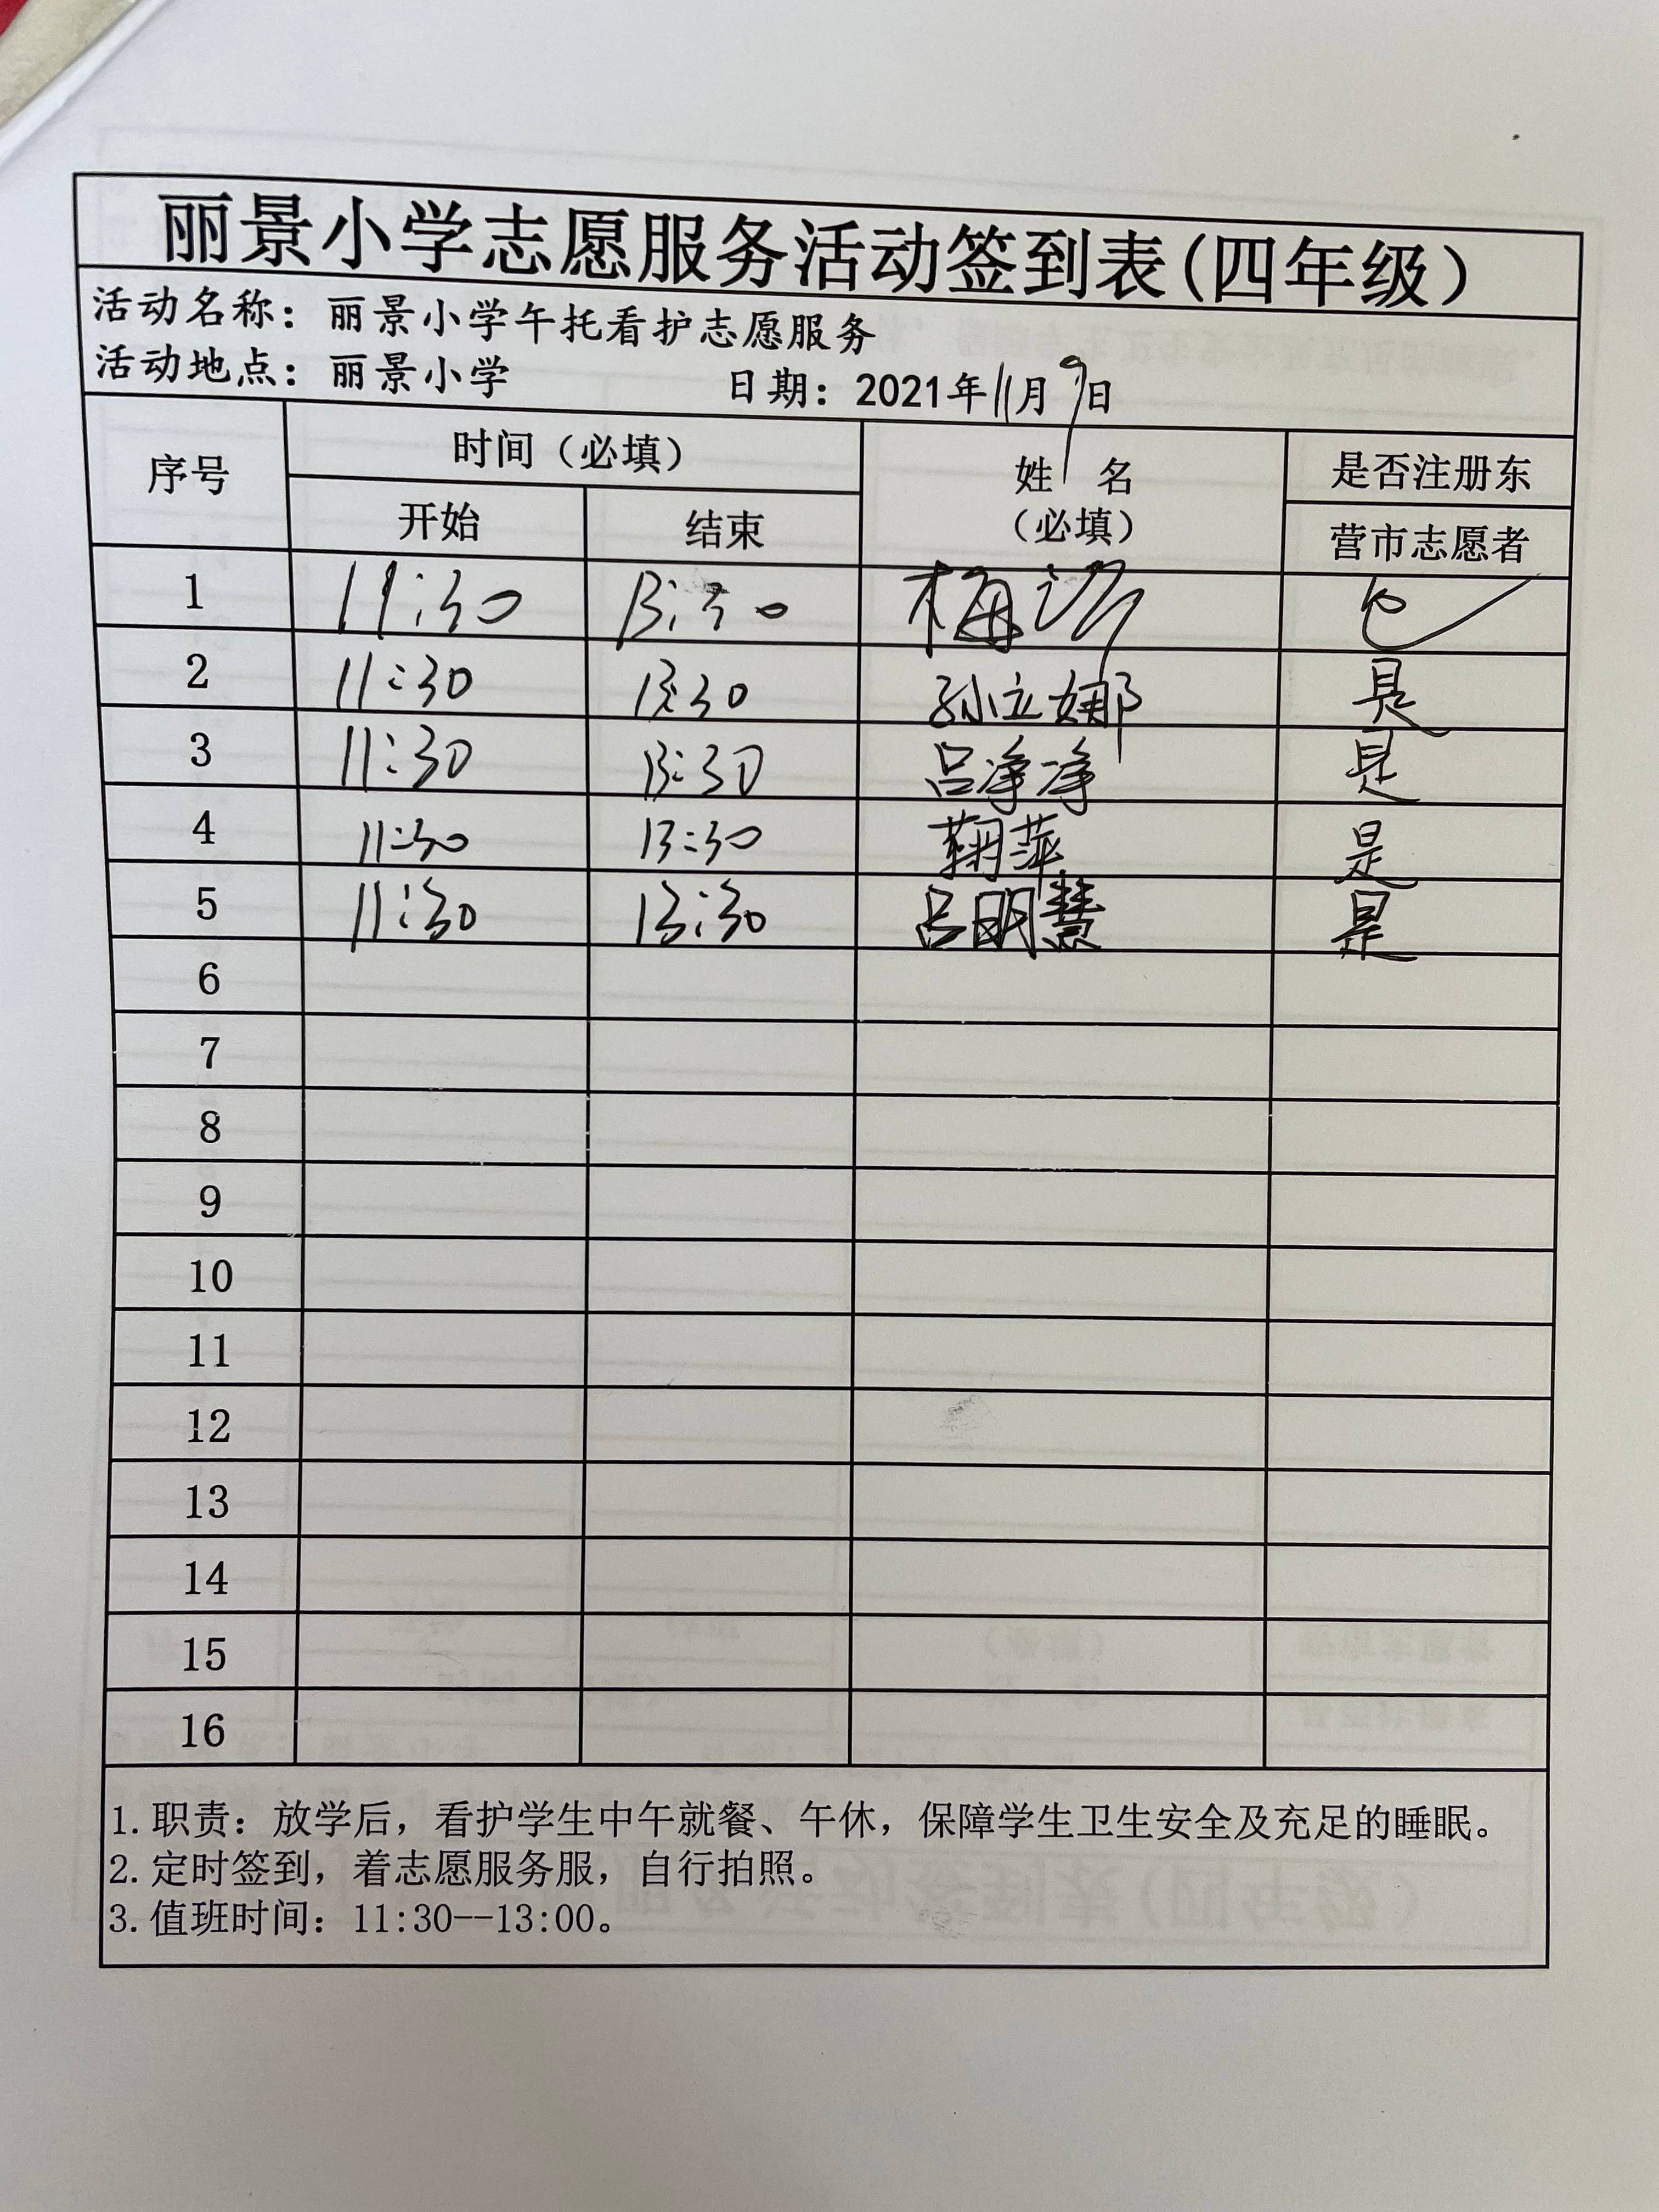 丽景小学志愿服务活动签到表(四年级)
活动名称：丽景小学午托看护志愿服务
活动地点：丽景小学 日期：2021年11月9日
序号 时间（必填） 姓 名 （必填） 是否注册东
开始 结束 营市志愿者
1 11:30 13:30 梅
2 11:30 13:30 孙立娜 是
3 11:30 13:30 吕净净 是
4 11:30 13:30 萍 是
5 11:30 13:30 吕明慧 是
6
7
8
9
10
11
12
13
14
15
16
1.职责：放学后，看护学生中午就餐、午休，保障学生卫生安全及充足的睡眠。
2.定时签到，着志愿服务服，自行拍照。
3.值班时间：11:30--13:00。